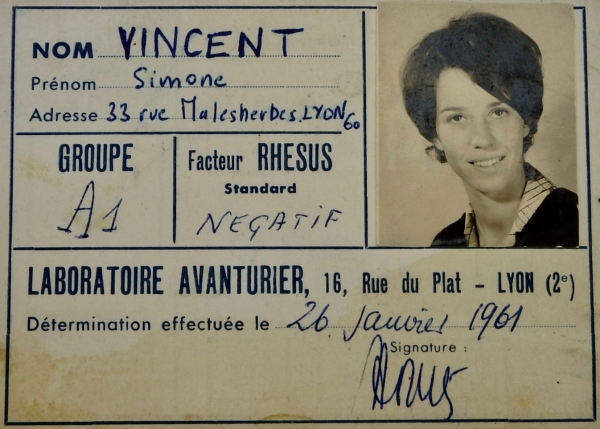 NOM VINCENT
Prénom Simone
Adresse 33 rue Malesherbes. LYON 6o
GROUPE
A1
Facteur RHESUS
Standard
NEGATIF
LABORATOIRE AVANTURIER, 16, Rue du Plat - LYON (2e)
Détermination effectuée le 26 Janvier 1961
Signature :